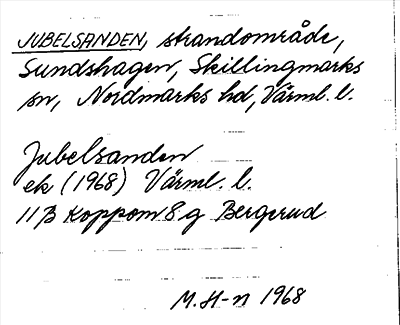 JUBELSANDEN, strandområde,
Sundshagen, Skillingmarks
sn, Nordmarks hd, Värml. l.
Jubelsanden
ek (1968) Värml. l.
11B Koppom 8 g Bergerud
M. H-n 1968